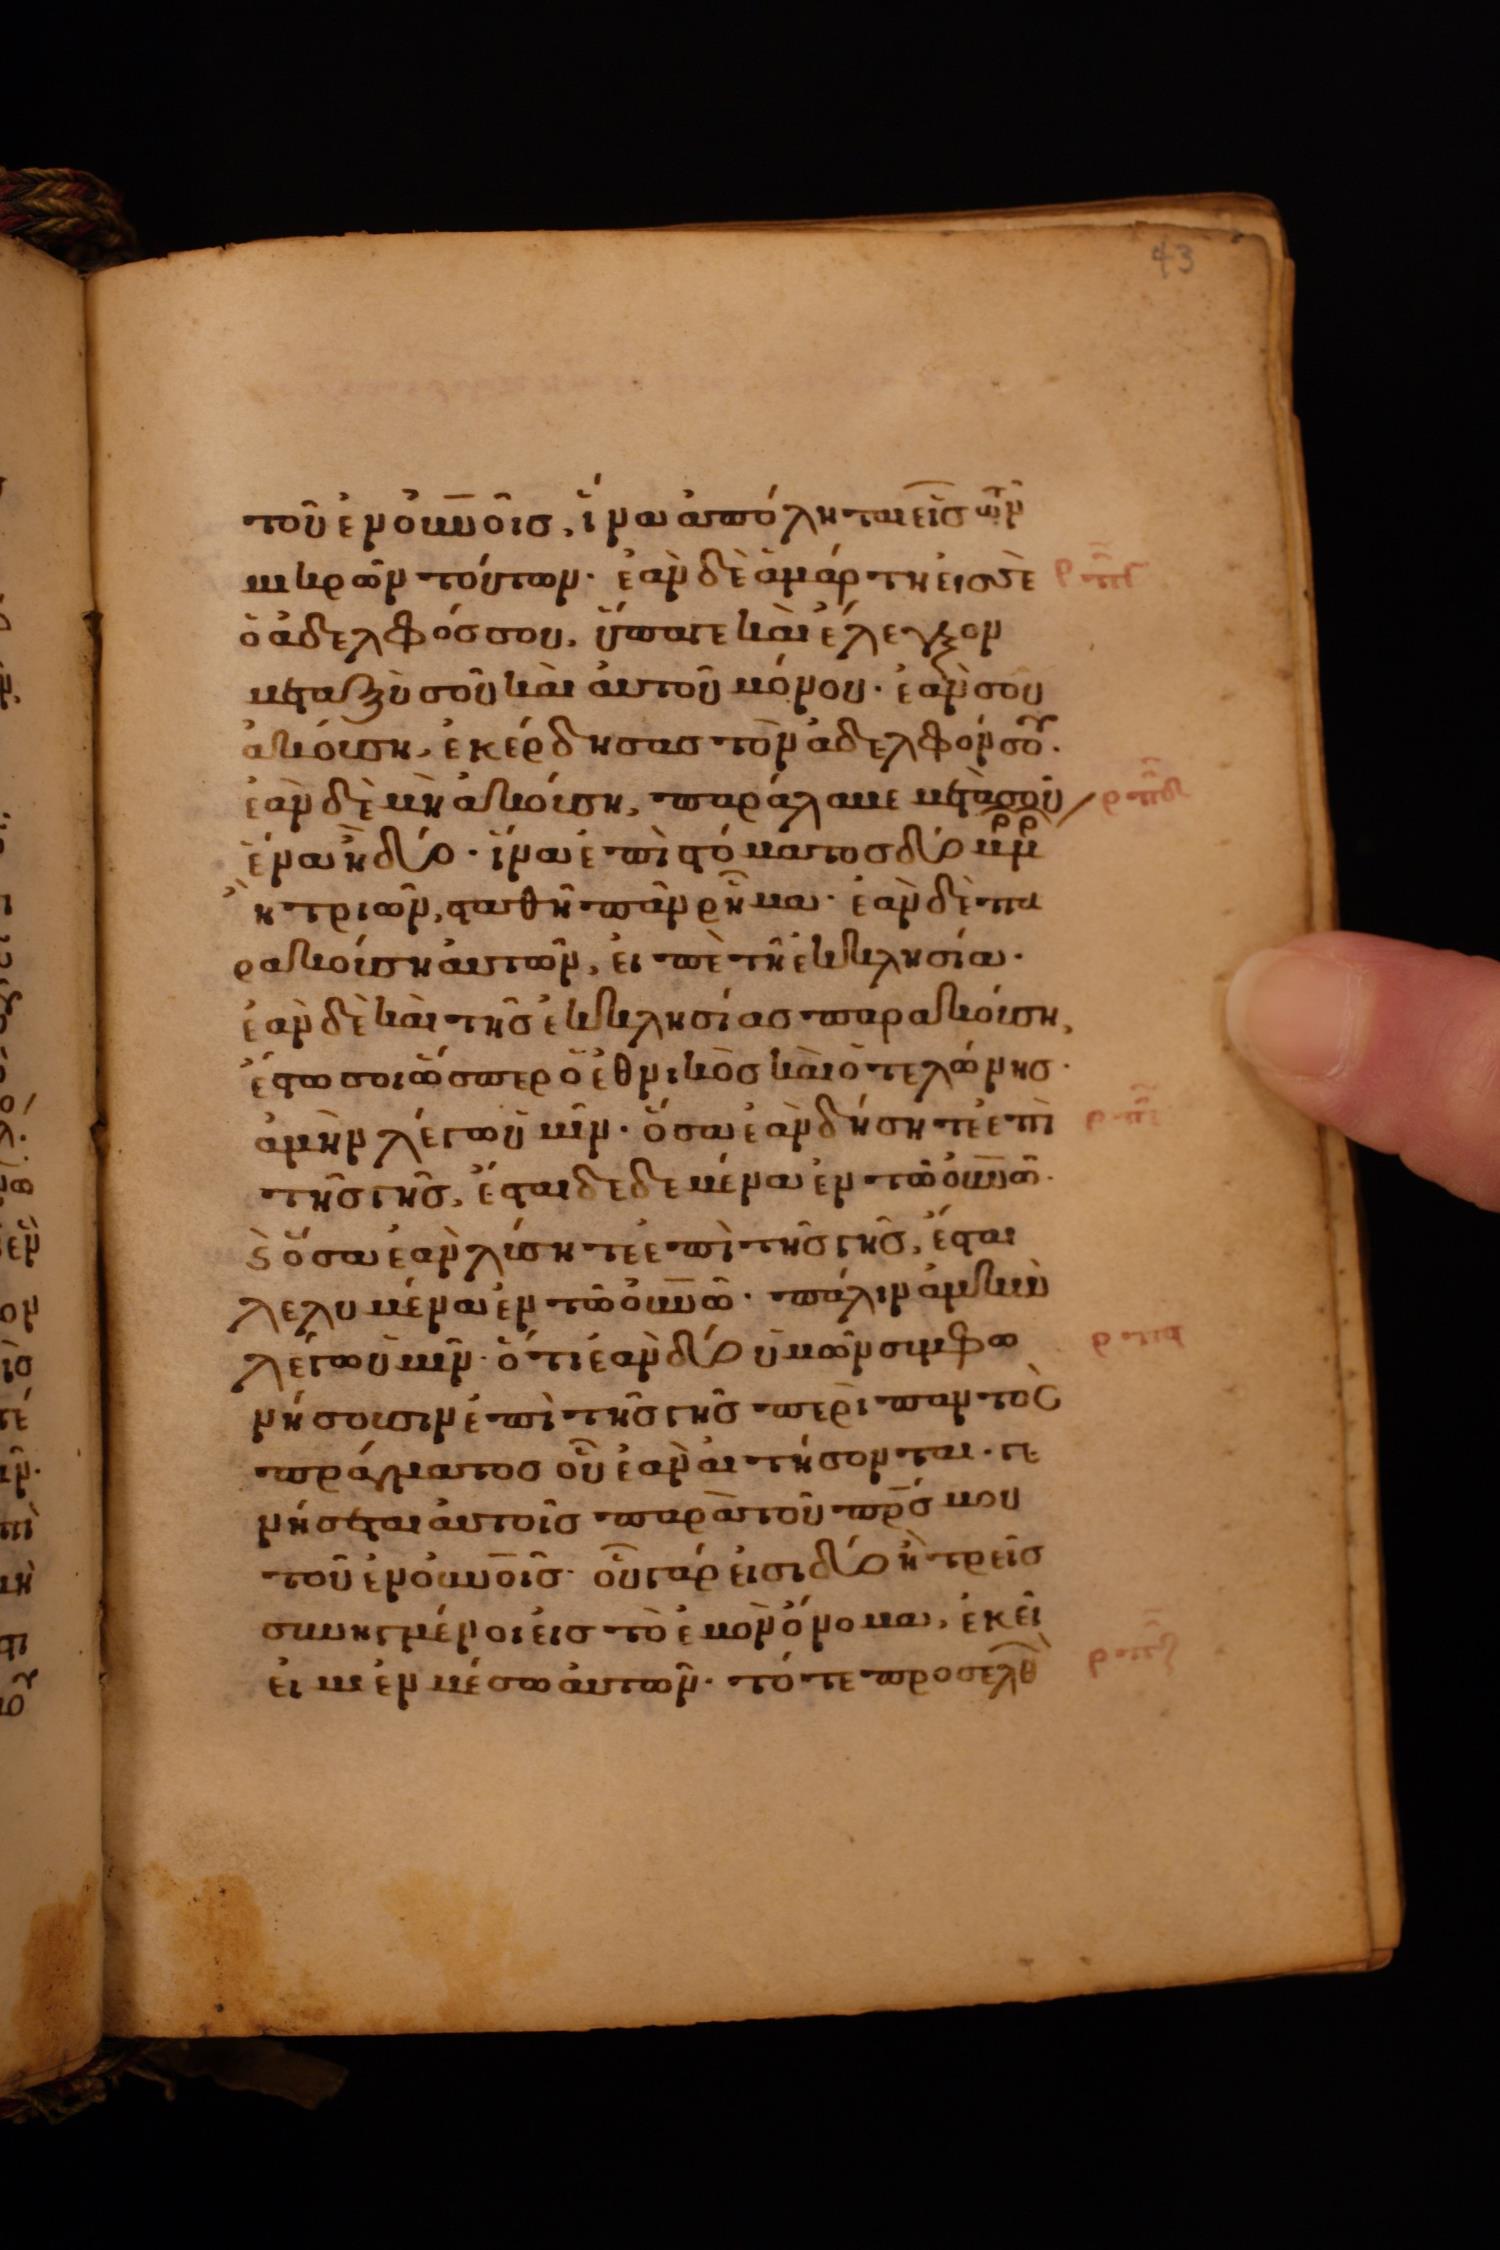 43
τοῦ ἐν οὐνοῖσ, ἵνα ἀπόληται εἷσ τῶν
μικρῶν τούτων· ἐὰν δὲ ἁμάρτη εἰσ σὲ
ὁ ἀδελφόσ σου, ὕπαγε καὶ ἔλεγξον
μεταξὺ σοῦ καὶ αὐτοῦ μόνου· ἐάν σου
ἀκούση, ἐκέρδησασ τὸν ἀδελφόν σου·
ἐὰν δὲ μὴ ἀκούση, παράλαβε μετὰ σοῦ
ἕνα ἢ δύο· ἵνα ἐπὶ στόματοσ δύο μρρ
ἢ τριῶν, σταθῆ πᾶν ρῆμα· ἐὰν δὲ πα
ρακούση αὐτῶν, εἰπὲ τῆ ἐκκλησία·
ἐὰν δὲ καὶ τῆσ ἐκκλησίασ παρακούση,
ἔστω σοι ὥσπερ ὁ ἐθνικὸσ καὶ ὁ τελώνησ·
ἀμὴν λέγω ὑμῖν· ὅσα ἐὰν δήσητε ἐπὶ
τῆσ γῆσ, ἔσται δεδεμένα ἐν τῶ οὐνῶ·
ϗ ὅσα ἐὰν λύσητε ἐπὶ τῆσ γῆσ, ἔσται
λελυμένα ἐν τῶ οὐνῶ· πάλιν ἀμὴν
λέγω ὑμῖν· ὅτι ἐὰν δύο ὑμῶν συμφω
νήσουσιν ἐπὶ τῆσ γῆσ περὶ παντὸσ
πράγματοσ οὗ ἐὰν αἰτήσονται· γε
νήσεται αὐτοῖσ παρὰ τοῦ πρσ μου
τοῦ ἐν οὐνοῖσ· οὗ γάρ εἰσι δύο ἢ τρεῖσ
συνηγμένοι εἰσ τὸ ἐμὸν ὄνομα, ἐκεῖ
εἰμι ἐν μέσω αὐτῶν· τότε προσελθ